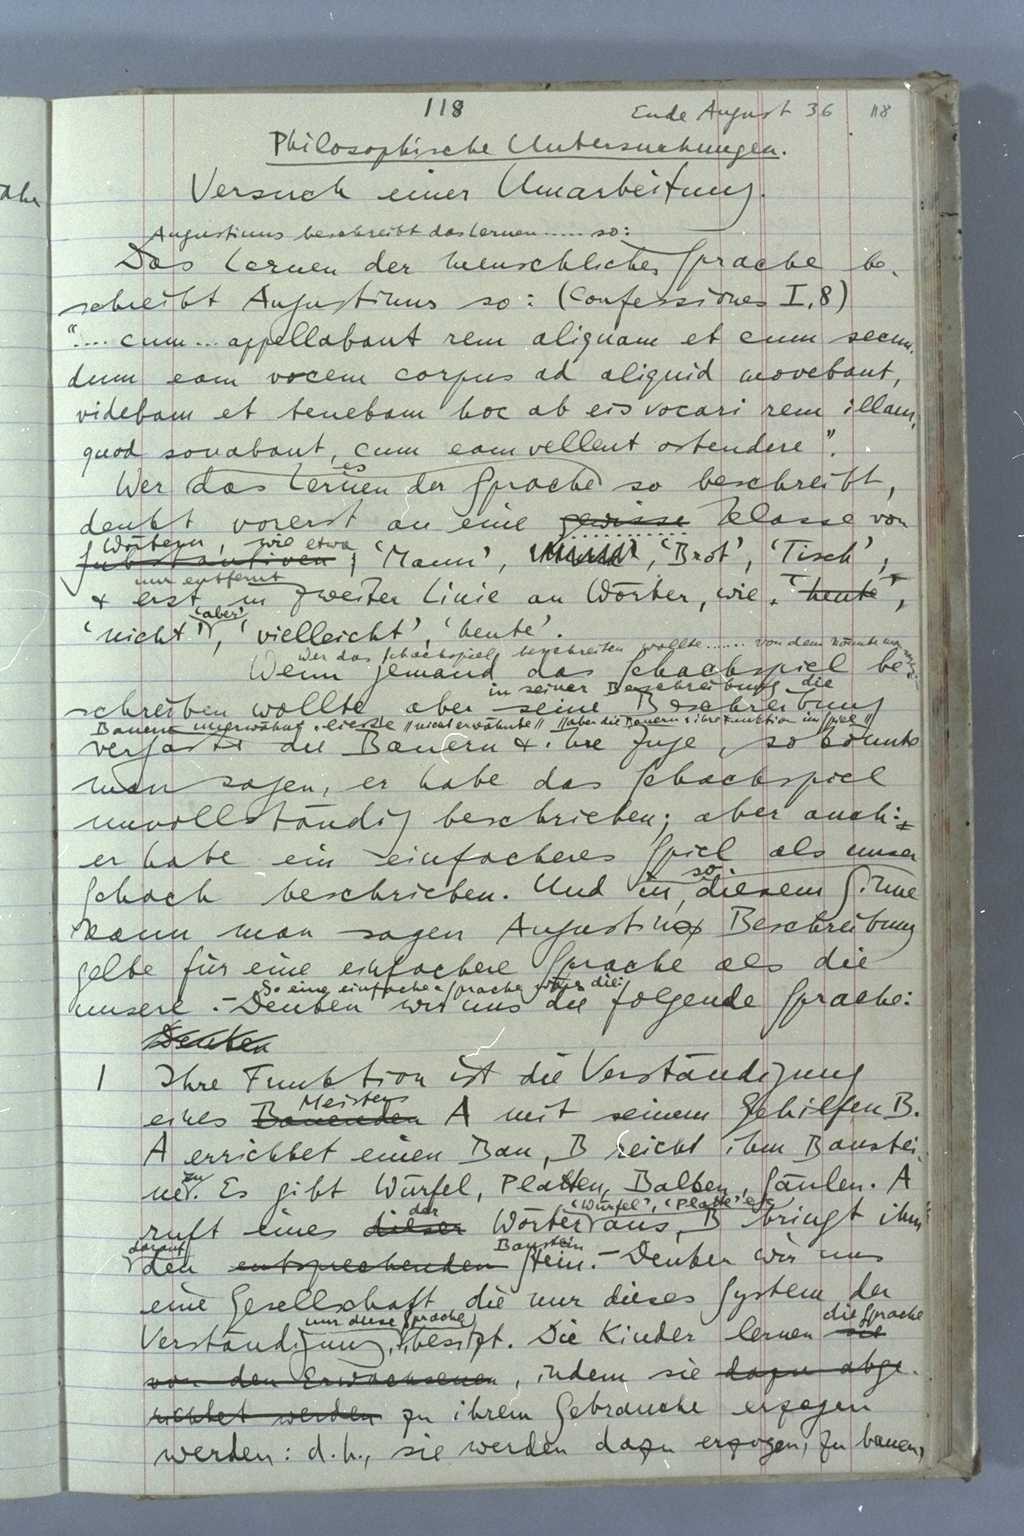 ahr
118
Ende August 36
118
Philosophische Untersuchungen.
Versuch einer Umarbeitung.
Augustinus beschreibt das Lernen ..... so:
Das Lernen der menschlichen Sprache be-
schreibt Augustinus so: (Confessiones I, 8)
"... cum ... appellabant rem aliquam et cum secun-
dum eam vocem corpus ad aliquid movebant,
videbam et tenebam hoc ab eis vocari rem illam,
quod sonabant, cum eam vellent ostendere".
es
Wer das Lernen der Sprache so beschreibt,
denkt vorerst an eine gewisse Klasse von
Wörtern, wie etwa
Substantiven, 'Mann', 'Brot', 'Tisch',
nur entfernt
& erst in zweiter Linie an Wörter, wie 'heute',
'aber'
'nicht', 'vielleicht', 'heute'.
Wer das Schachspiel beschreiben wollte ...... von dem könnte man
Wenn jemand das Schachspiel be-
in seiner Beschreibung die
schreiben wollte aber seine Beschreibung
Bauern unerwähnt liesse "nicht erwähnte" "aber die Bauern & ihre Funktion im Spiel"
vergässe die Bauern & ihre Züge, so könnte
man sagen, er habe das Schachspiel
unvollständig beschrieben; aber auch:
er habe ein einfacheres Spiel als unser
so
Schach beschrieben. Und in diesem Sinne
kann man sagen Augustins Beschreibung
gelte für eine einfachere Sprache als die
So eine einfache Sprache wäre die:
unsere. – Denken wir uns die folgende Sprache:
Denken
1 Ihre Funktion ist die Verständigung
Meisters
eines Bauenden A mit seinem Gehilfen B.
A errichtet einen Bau, B reicht ihm Baustei-
zu
ne. Es gibt Würfel, Platten, Balken, Säulen. A
der 'Würfel', 'Platte' etc
ruft eines dieser Wörter aus, B bringt ihm
darauf Baustein
den entsprechenden Stein. – Denken wir uns
eine Gesellschaft die nur dieses System der
nur diese Sprache die Sprache
Verständigung besitzt. Die Kinder lernen sie
von den Erwachsenen, indem sie dazu abge-
richtet werden zu ihrem Gebrauche erzogen
werden: d.h., sie werden dazu erzogen, zu bauen,